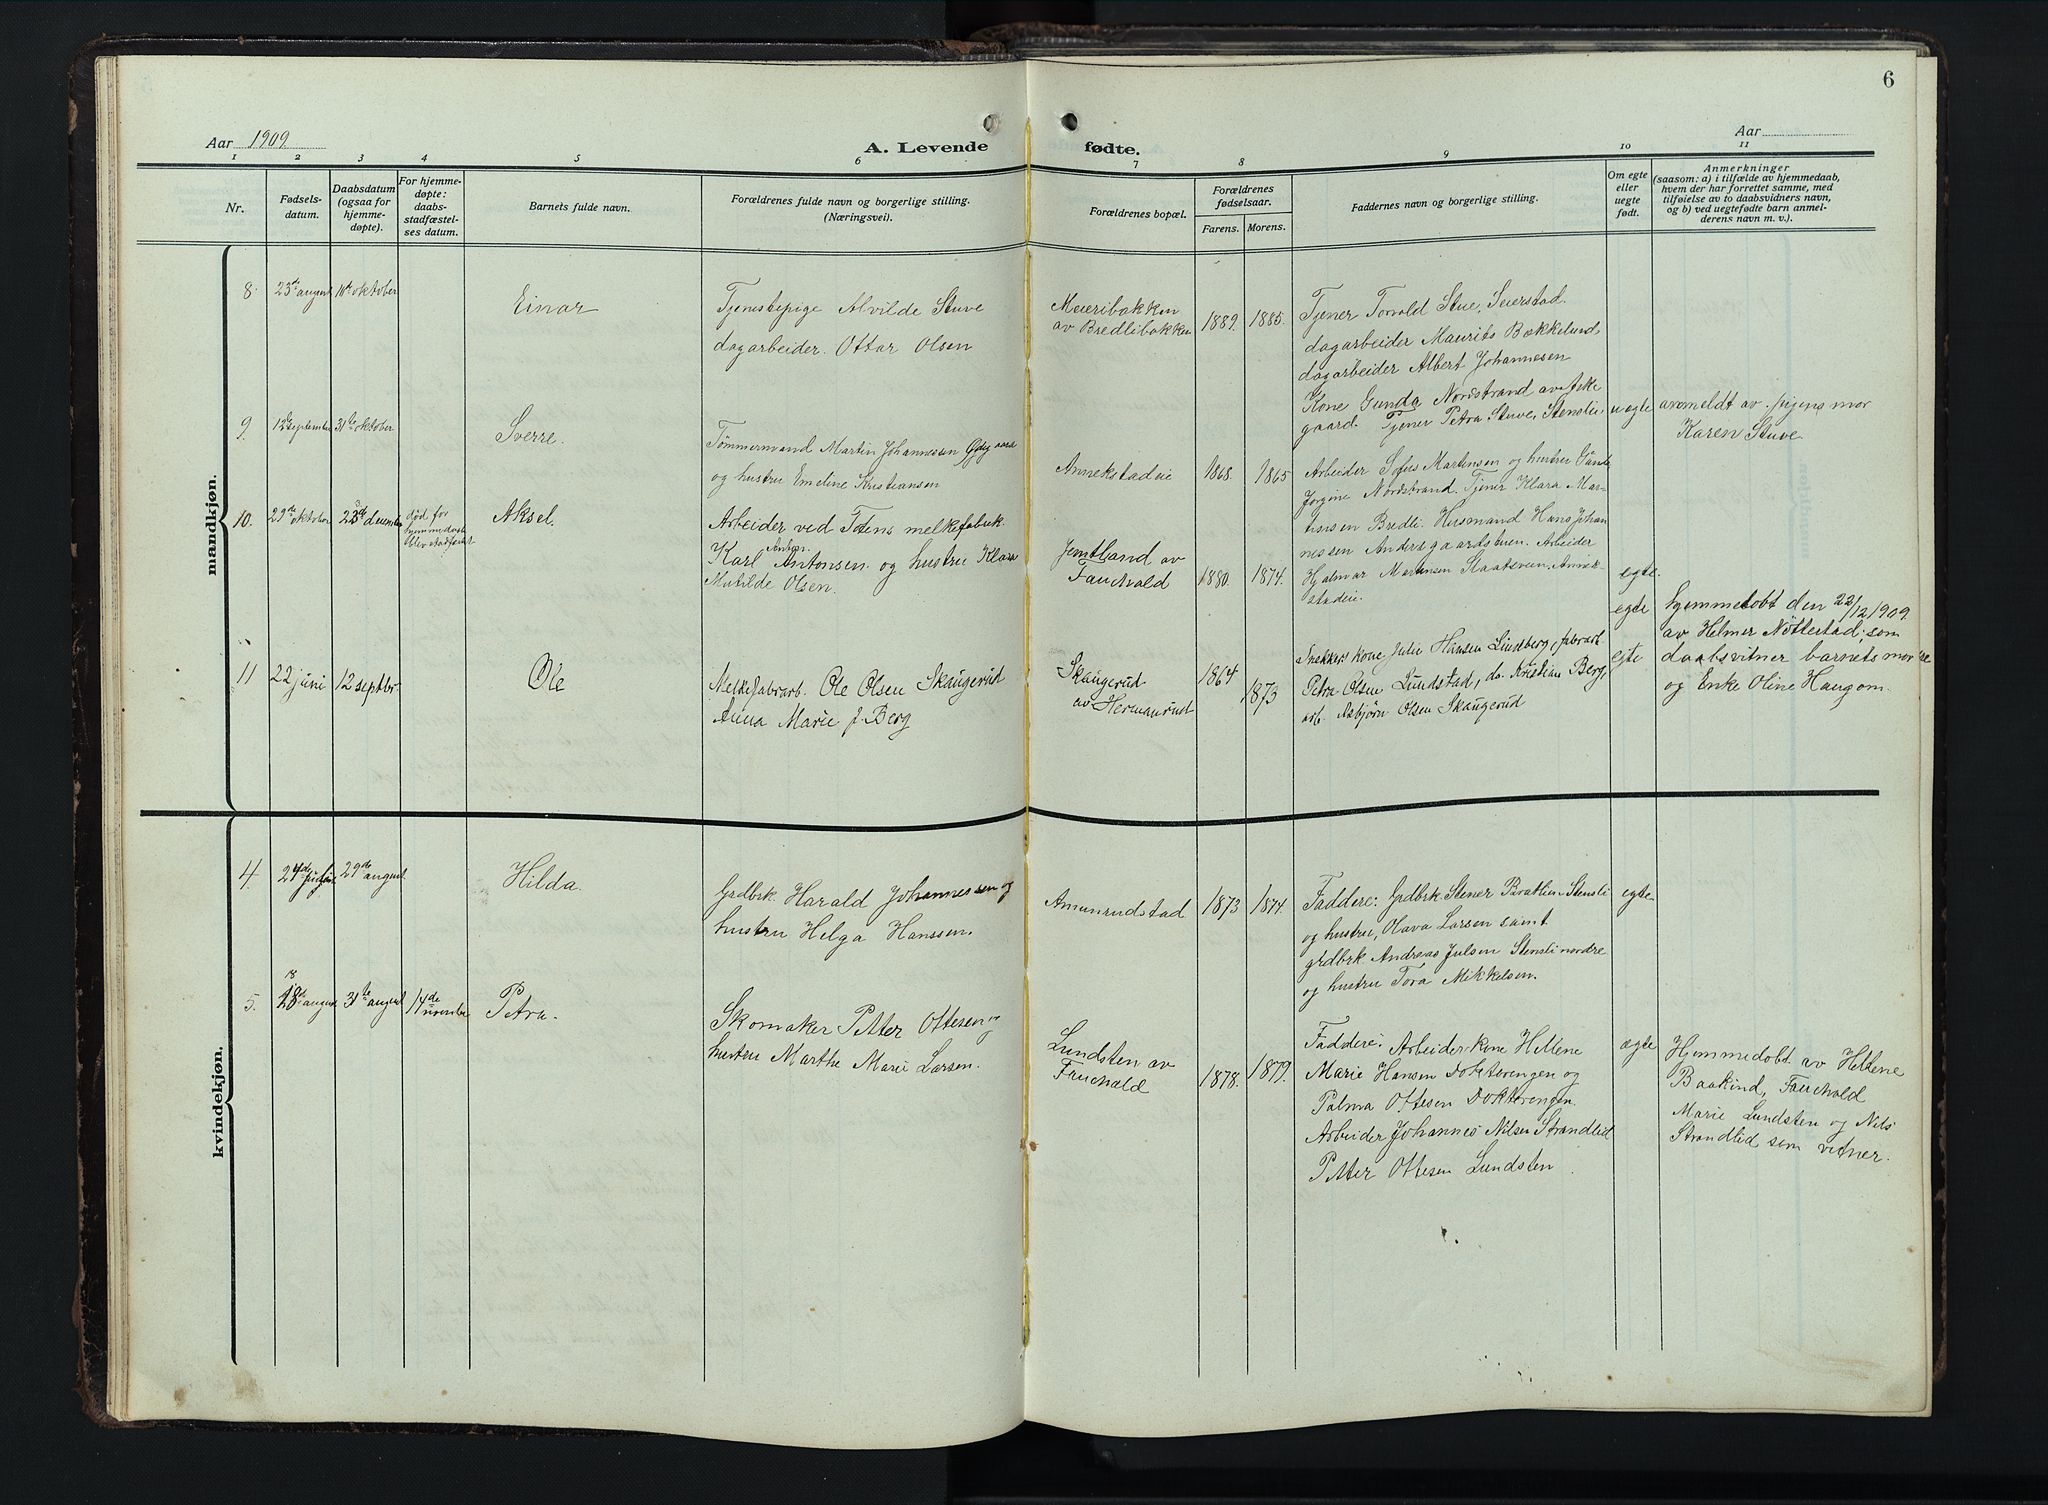 6
Aar 1909
A. Levende
fødte.
Aar
1 2 3 4 5 6 7 8 9 10 11
Nr.
Fødsels-
datum.
Daabsdatum
(ogsaa for
hjemme-
døpte).
For hjemme-
døpte:
daabs-
stadfæstel-
ses datum.
Barnets fulde navn.
Forældrenes fulde navn og borgerlige stilling.
(Næringsvei).
Forældrenes bopæl.
Forældrenes
fødselsaar.
Farens. Morens.
Faddernes navn og borgerlige stilling.
Om egte
eller
uegte
født.
Anmerkninger
(saasom: a) i tilfælde av hjemmedaab,
hvem der har forrettet samme, med
tilføielse av to daabsvidners navn,
og b) ved uegtefødte barn anmel-
derens navn m. v.).
mandkjøn.
8.
23de august
10de oktober
Einar
Tjenestepige Alvilde Stuve
dagarbeider. Ottar Olsen
Meieribakken
av Bredlibakken
1889. 1885.
Tjener Torvald Stue, Seierstad.
dagarbeider Maurits Bækkelund,
dagarbeider Albert Johannesen
Kone Gunda Nordstrand av Aske
gaard. Tjener Petra Stuve, Stenslie.
uegte
anmeldt av pigens mor
Karen Stuve.
9.
september
31te oktober
Sverre.
Tømmermand Martin Johannesen
og hustru Emeline Kristiansen
Annekstadeie
1868. 1865
Arbeider Sofus Martinsen og hustru
Jørgine Nordstrand. Tjener Klara Mar-
tinsen Bredli. Husmand Hans Johan
nessen Andersgaardstuen. Arbeider
Hjalmar Martinsen Annek-
stadeie.
egte.
10.
29de oktober
23de december
død før
hjemmedaab
blev stadfæstet
Aksel.
Arbeider ved Totens melkefabrik
Karl Anton Antonsen og hustru Klara
Matilde Olsen.
Jemtland av
Fauchald
1880. 1874.
egte
Hjemmedøbt den 22/12 1909.
av Helmer Nøttestad; som
daabsvitner barnets mor
og Enke Oline Haugom.
11
22 juni
12 septbr.
Ole
Melkefabrarb. Ole Olsen Skaugerud
Anna Marie f. Berg
Skaugerud
av Hermanrud
1864
1873
Snekkers kone Julie Hansen Lindberg, fabrarb.
Petra Olsen Lundstad, do. Kristian Berg,
arb. Asbjørn Olsen Skaugerud
egte
kvindekjøn.
4.
24de
29de august
Hilda.
Grdbrk. Harald Johannessen og
hustru Helga Hanssen.
Amunrudstad
1873 1874.
Faddere: Grdbrk Stener Bratlien Stensli
og hustru, Olava Larsen samt
grdbrk Andreas Julsen Stensli nordre
og hustru Tora Mikkelsen.
egte
5.
18
18de august
31te august
14de november
Petra.
Skomaker Petter Ottesen og
hustru Marthe Marie Larsen.
Lundsten av
Fauchald
1878. 1879.
Faddere: Arbeider-kone Hellene
Marie Hansen Dokterengen og
Palma Ottesen Dokterengen.
Arbeider Johannes Nilsen Strandlid
Petter Ottesen Lundsten.
ægte
Hjemmedøbt av Hellene
Baakind, Fauchald
Marie Lundsten og Nils
Strandlid som vitner.